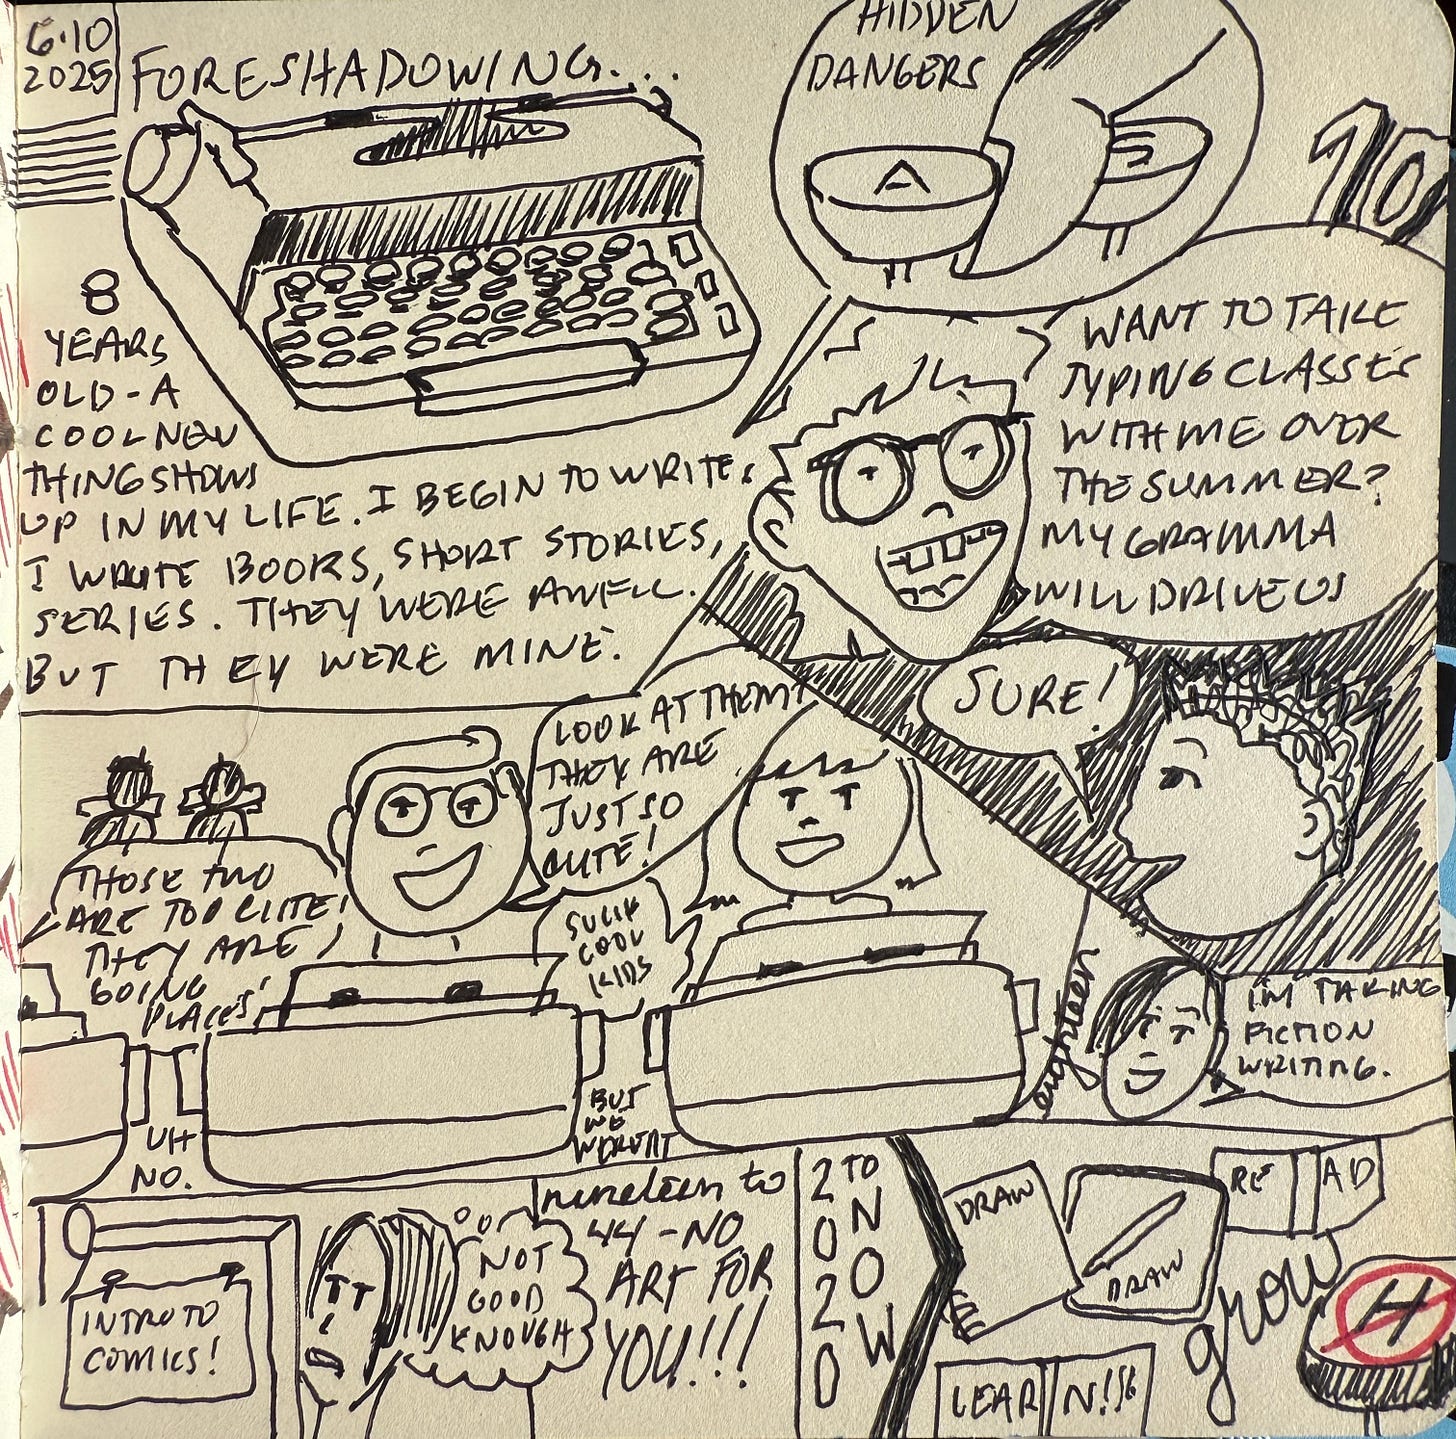 6.10
2025
FORESHADOWING...
HIDDEN
DANGERS
8
YEARS
OLD - A
COOL NEW
THING SHOWS
UP IN MY LIFE. I BEGIN TO WRITE.
I WROTE BOOKS, SHORT STORIES,
SERIES. THEY WERE AWFUL.
BUT THEY WERE MINE.
10
WANT TO TAKE
TYPING CLASSES
WITH ME OVER
THE SUMMER?
MY GRAMMA
WILL DRIVE US
SURE!
THOSE TWO
ARE TOO CUTE!
THEY ARE
GOING
PLACES!
LOOK AT THEM!
THEY ARE
JUST SO
CUTE!
SUCH
COOL
KIDS
UH
NO.
BUT
WE
WEREN'T
eighteen
I'M TAKING
FICTION
WRITING.
INTRO TO
COMICS!
NOT
GOOD
ENOUGH
nineteen to
44 - NO
ART FOR
YOU!!!
2020
TO
NOW
DRAW
DRAW
RE AD
grow
LEAR N!
H